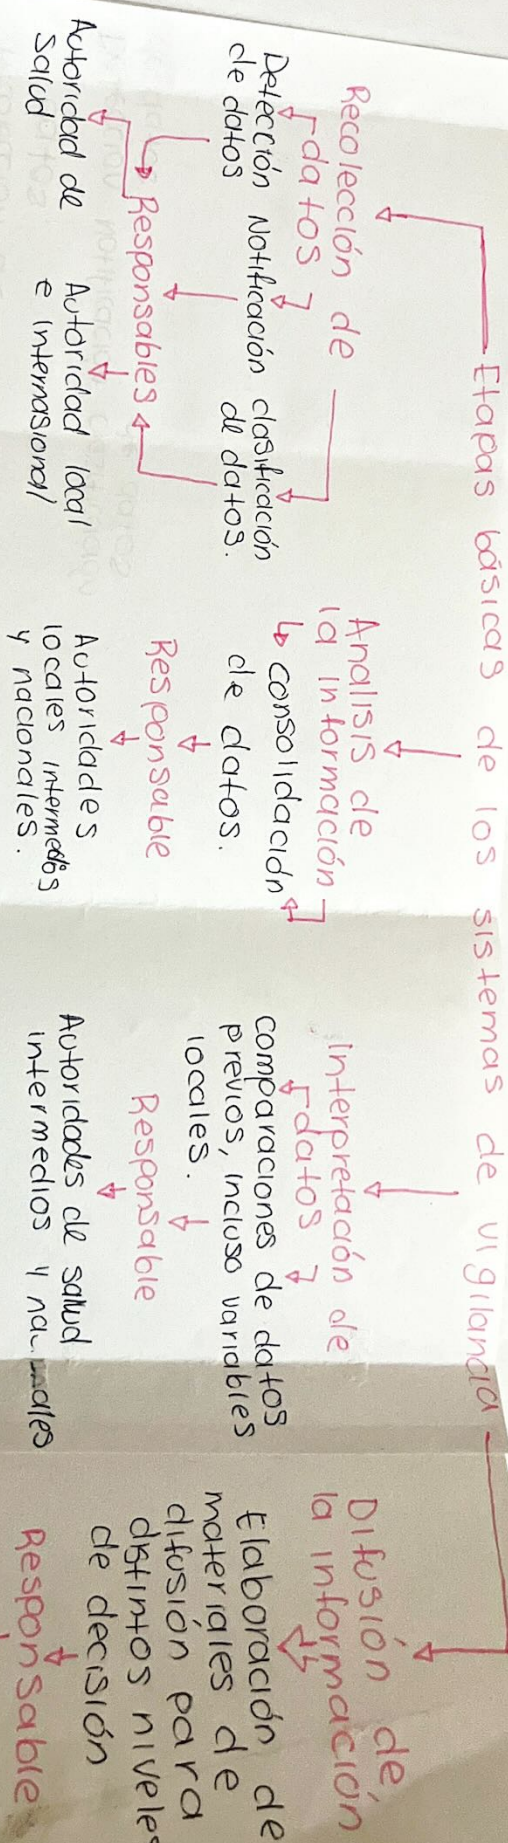 Etapas básicas de los sistemas de vigilancia
Recolección de
datos
Detección
de datos
Notificación
clasificación
de datos.
Responsables
Autoridad de
Salud
Autoridad local
e internasional
Analisis de
la información
consolidación
de datos.
Responsable
Autoridades
locales intermedios
y nacionales.
interpretación de
datos
comparaciones de datos
previos, incluso variables
locales.
Responsable
Autoridades de salud
intermedios y
Difusión de
la información
Elaboración de
materiales de
difusión para
distintos
de decisión
Responsable